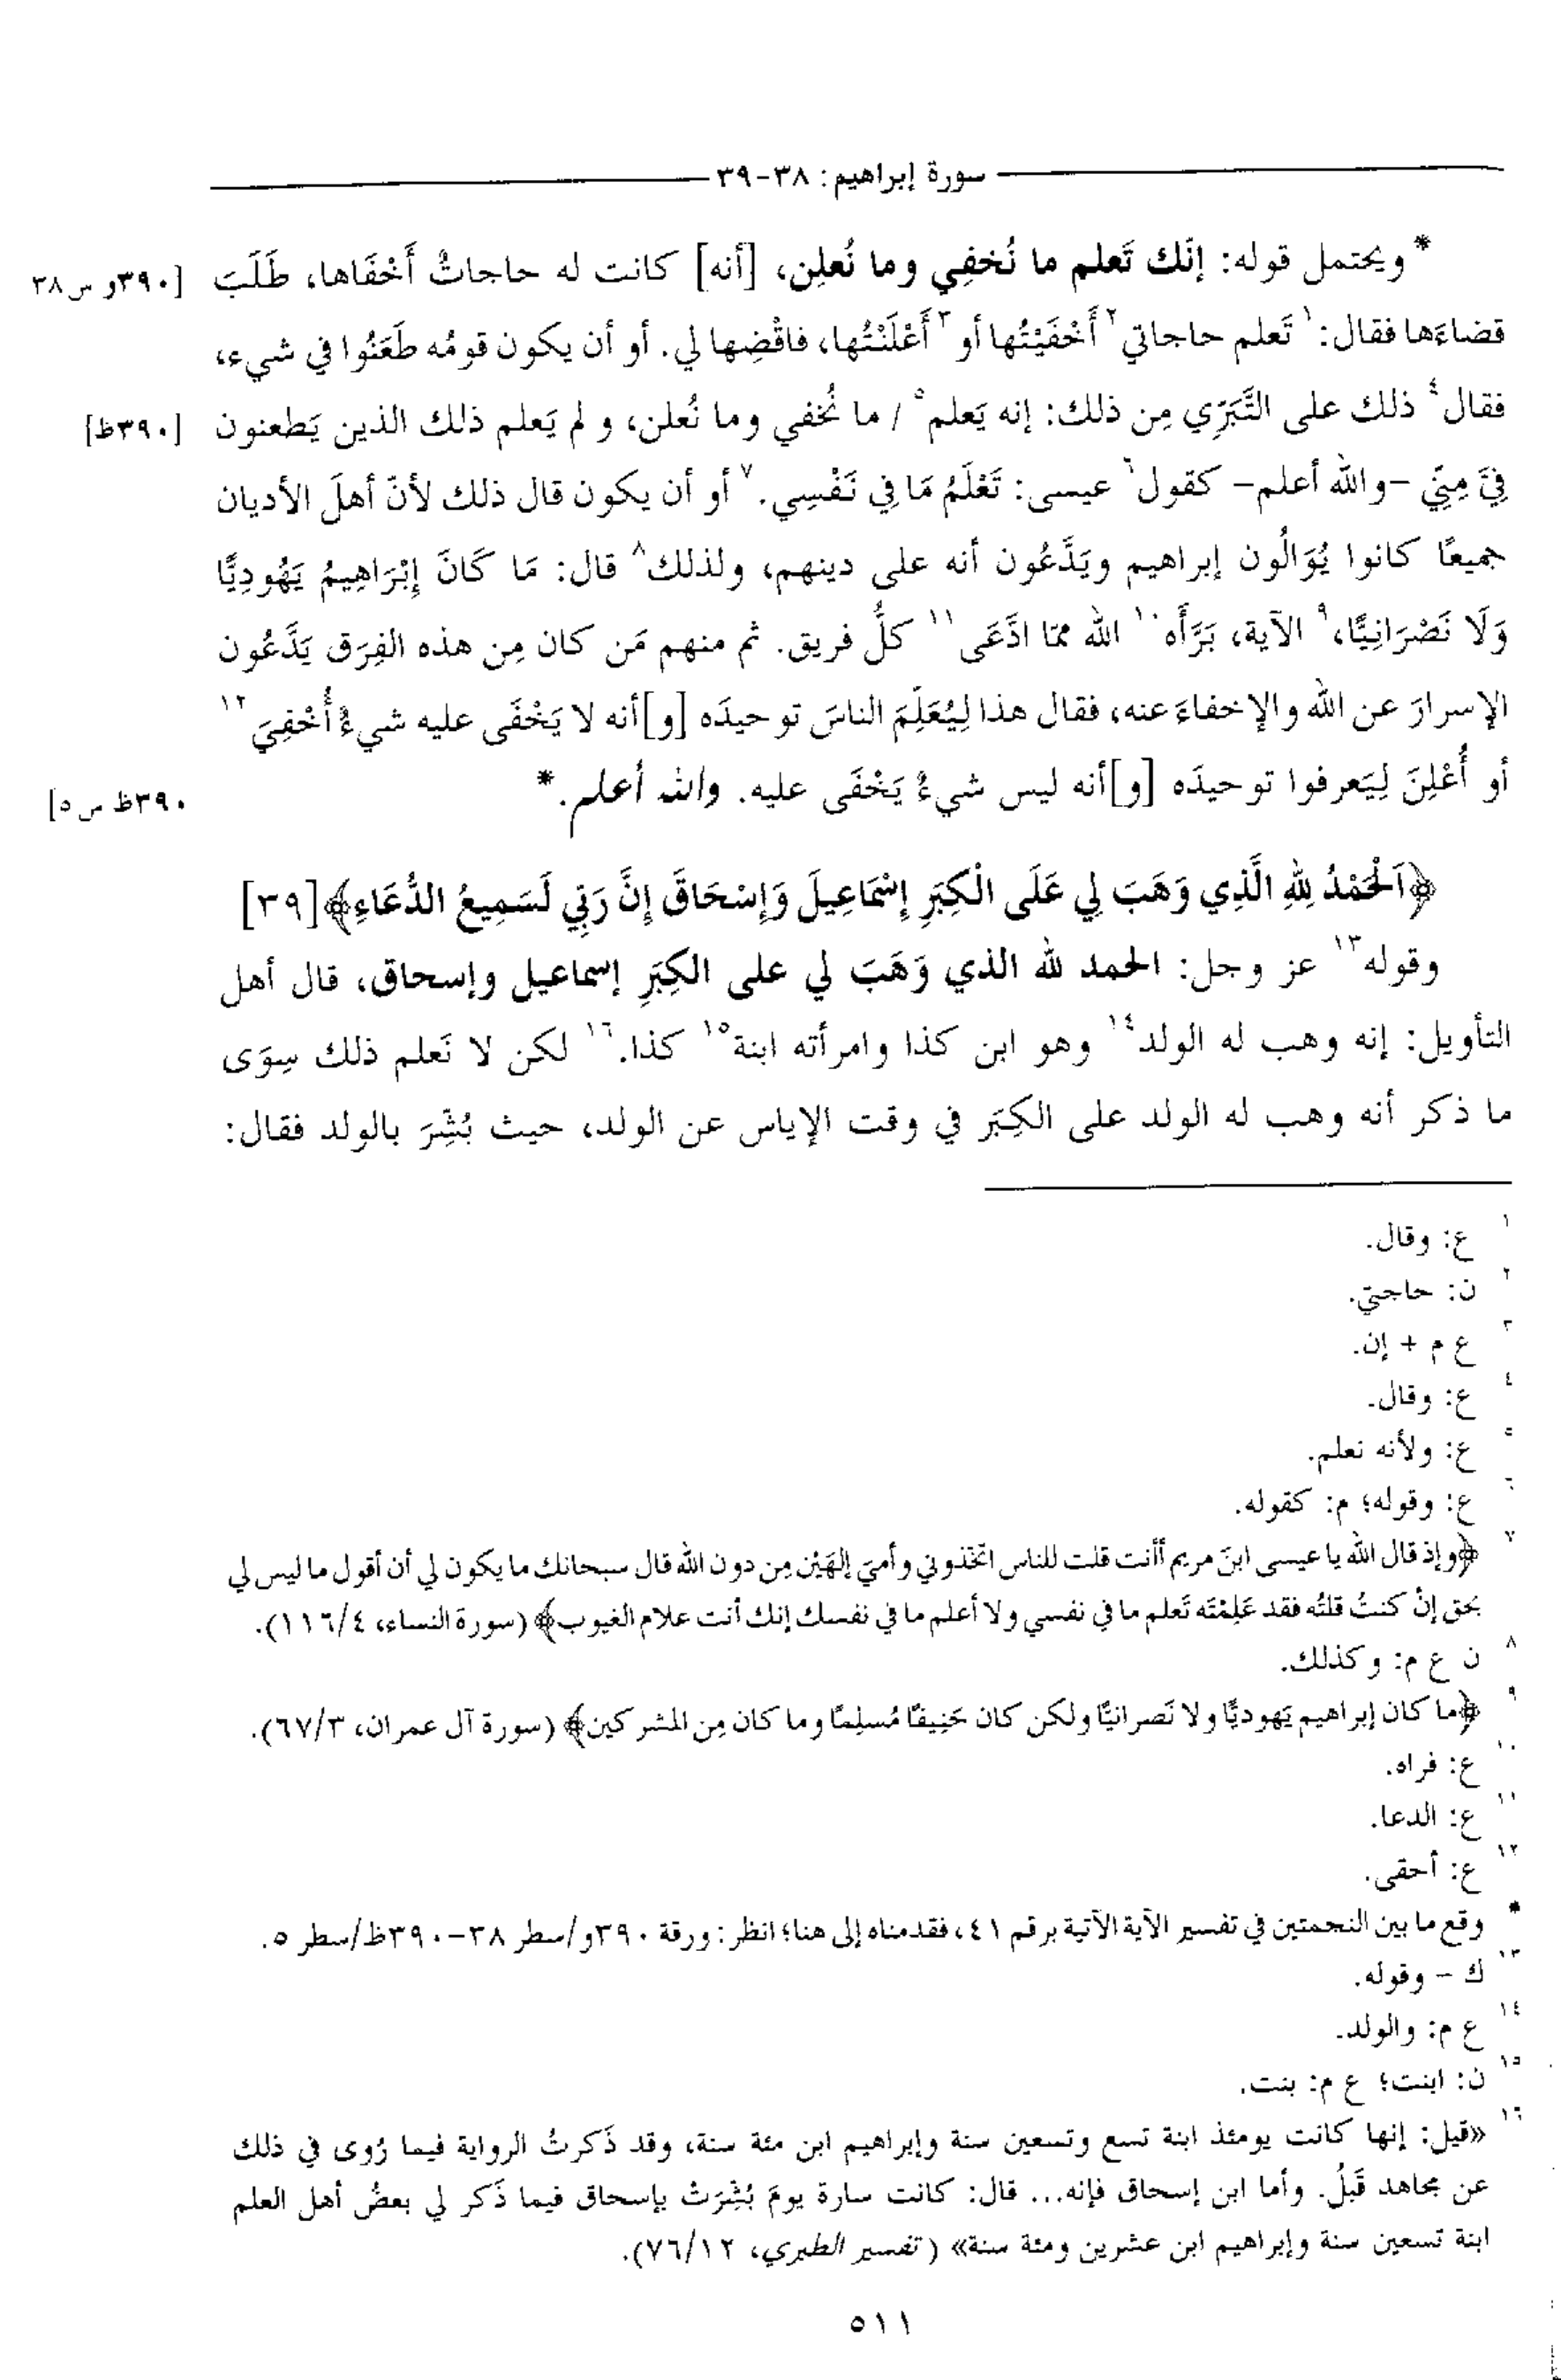 سورة إبراهيم: ٣٨-٣٩
* ويحتمل قوله: إنّك تَعلم ما نُخفِي وما نُعلِن، [أنه] كانت له حاجاتٌ أَخْفَاها، طَلَبَ [٣٩٠و س٣٨
قضاءَها فقال:١ تَعلم حاجاتي٢ أَخْفَيْتُها أو٣ أَعْلَنْتُها، فاقْضِها لي. أو أن يكون قومُه طَعَنُوا في شيء،
فقال٤ ذلك على التَّبَرِّي مِن ذلك: إنه يَعلم٥ / ما نُخفي وما نُعلن، و لم يَعلم ذلك الذين يَطعنون [٣٩٠ظ]
فِيَّ مِنِّي -والله أعلم- كقول٦ عيسى: تَعْلَمُ مَا فِي نَفْسِي.٧ أو أن يكون قال ذلك لأنّ أهلَ الأديان
جميعًا كانوا يُوَالُون إبراهيم ويَدَّعُون أنه على دينهم، ولذلك٨ قال: مَا كَانَ إِبْرَاهِيمُ يَهُودِيًّا
وَلَا نَصْرَانِيًّا،٩ الآية، بَرَّأَه١٠ الله ممّا ادَّعَى١١ كلُّ فريق. ثم منهم مَن كان مِن هذه الفِرَق يَدَّعُون
الإسرارَ عن الله والإخفاءَ عنه، فقال هذا لِيُعَلِّمَ الناسَ توحيدَه [و]أنه لا يَخْفَى عليه شيءٌ أُخْفِيَ١٢
أو أُعْلِنَ لِيَعرفوا توحيدَه [و]أنه ليس شيءٌ يَخْفَى عليه. والله أعلم.* ٣٩٠ظ س٥]
﴿اَلْحَمْدُ لِلّٰهِ الَّذِي وَهَبَ لِي عَلَى الْكِبَرِ إِسْمَاعِيلَ وَإِسْحَاقَ إِنَّ رَبِّي لَسَمِيعُ الدُّعَاءِ﴾[٣٩]
وقوله١٣ عز وجل: الحمد لله الذي وَهَبَ لي على الكِبَرِ إسماعيل وإسحاق، قال أهل
التأويل: إنه وهب له الولد١٤ وهو ابن كذا وامرأته ابنة١٥ كذا.١٦ لكن لا نَعلم ذلك سِوَى
ما ذكر أنه وهب له الولد على الكِبَر في وقت الإياس عن الولد، حيث بُشِّرَ بالولد فقال:
١ ع: وقال.
٢ ن: حاجتي.
٣ ع م + إن.
٤ ع: وقال.
٥ ع: ولأنه نعلم.
٦ ع: وقوله؛ م: كقوله.
٧ ﴿وإذ قال الله يا عيسى ابنَ مريم أأنت قلت للناس اتّخذوني وأميَ إلهَيْن مِن دون الله قال سبحانك ما يكون لي أن أقول ما ليس لي
بحق إنْ كنتُ قلتُه فقد عَلِمْتَه تَعلم ما في نفسي ولا أعلم ما في نفسك إنك أنت علام الغيوب﴾ (سورة النساء، ١١٦/٤).
٨ ن ع م: وكذلك.
٩ ﴿ما كان إبراهيم يَهوديًّا ولا نَصرانيًّا ولكن كان حَنِيفًا مُسلِمًا وما كان مِن المشركين﴾ (سورة آل عمران، ٦٧/٣).
١٠ ع: فراه.
١١ ع: الدعا.
١٢ ع: أحقى.
* وقع ما بين النجمتين في تفسير الآية الآتية برقم ٤١، فقدمناه إلى هنا؛ انظر: ورقة ٣٩٠و/سطر ٣٨-٣٩٠ظ/سطر ٥.
١٣ ك - وقوله.
١٤ ع م: والولد.
١٥ ن: ابنت؛ ع م: بنت.
١٦ «قيل: إنها كانت يومئذ ابنة تسع وتسعين سنة وإبراهيم ابن مئة سنة، وقد ذَكرتُ الرواية فيما رُوى في ذلك
عن مجاهد قَبلُ. وأما ابن إسحاق فإنه... قال: كانت سارة يومَ بُشِّرَتْ بإسحاق فيما ذَكر لي بعضُ أهل العلم
ابنة تسعين سنة وإبراهيم ابن عشرين ومئة سنة» (تفسير الطبري، ٧٦/١٢).
٥١١